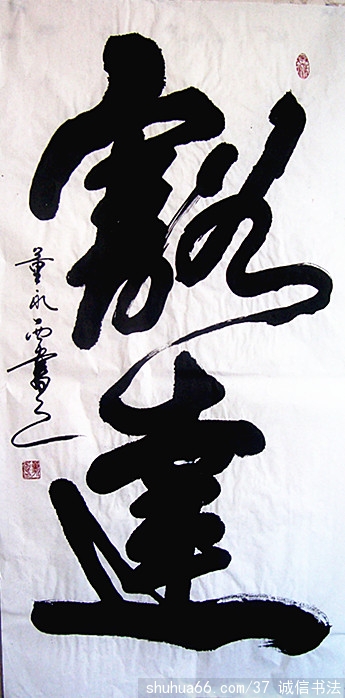 豁達
董永西書之
shuhua66.com/37 诚信书法